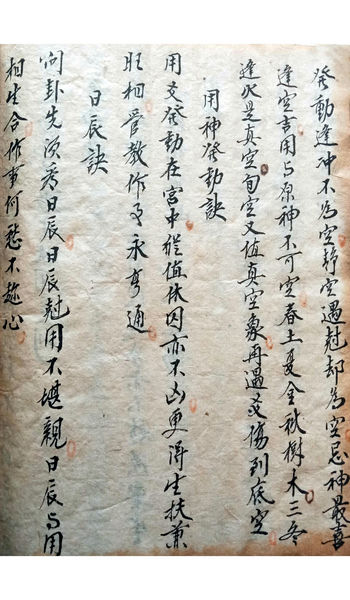 發動逢冲不為空静空遇尅却為空忌神最喜
逢空吉用与原神不可空春土夏金秋樹木三冬
逢火是真空旬空又值真空象再遇爻傷到底空
用神發動訣
用爻發動在宮中縱值休囚亦不凶更得生扶兼
旺相管教作事永亨通
日辰訣
问卦先须看日辰日辰尅用不堪親日辰与用
相生合作事何愁不趁心